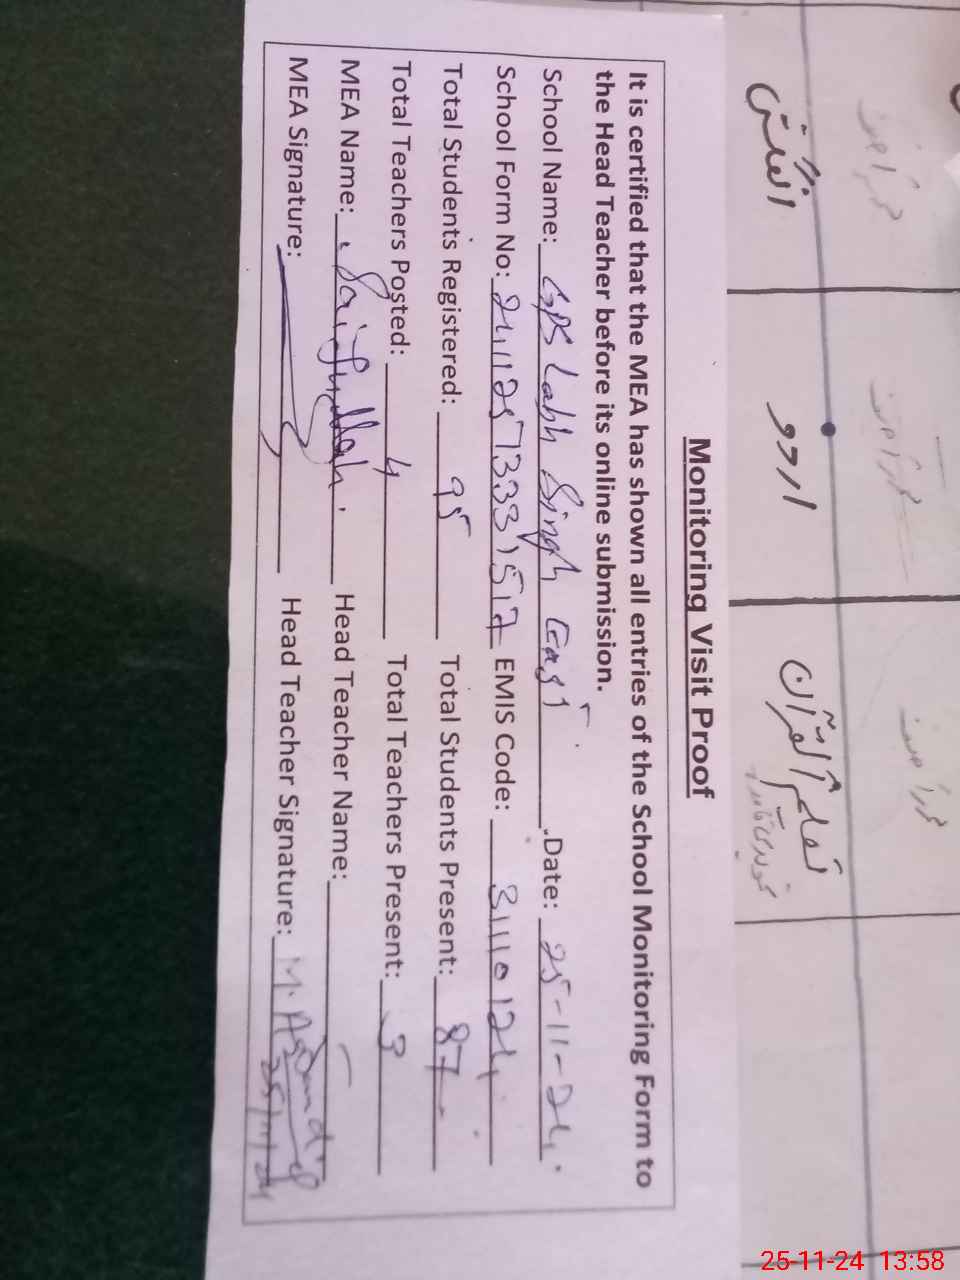 Monitoring Visit Proof
It is certified that the MEA has shown all entries of the School Monitoring Form to
the Head Teacher before its online submission.
School Name: GPS Labh Singh East. Date: 25-11-24.
School Form No: 24112573331517 EMIS Code: 31110124
Total Students Registered: 95 Total Students Present: 87
Total Teachers Posted: 4 Total Teachers Present: 3
MEA Name: Saifullah. Head Teacher Name:
MEA Signature: Head Teacher Signature: M.
25/11/24
انگلش
اردو
تعلیم القرآن
25-11-24 13:58